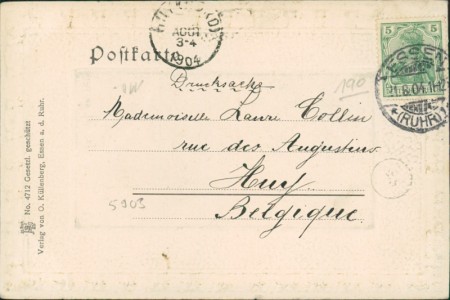 Postkarte
AOUT
3-4
1904
5 5
ESSEN
21.8.04. 11-12
(RUHR)
Drucksache
190
Mademoiselle Laure Collin
rue des Augustins
Huy
Belgique
5903
No. 4712 Gesetzl. geschützt
Verlag von O. Küllenberg, Essen a. d. Ruhr.